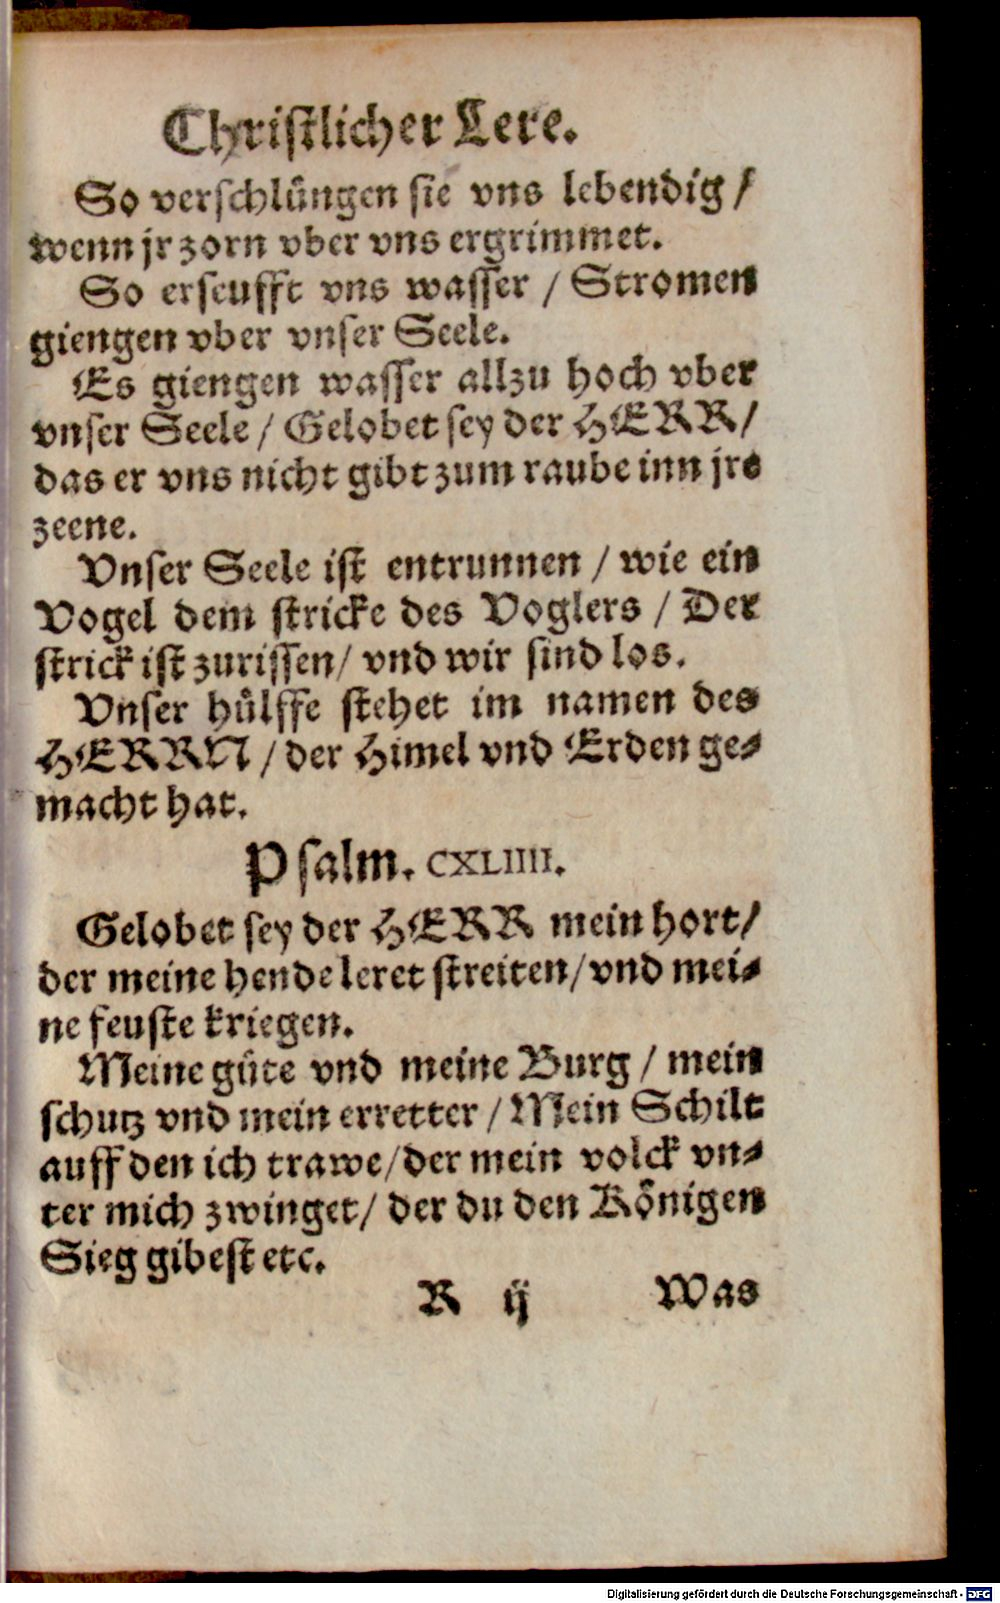 Christlicher Lere.
So verschlüngen sie vns lebendig /
wenn jr zorn vber vns ergrimmet.
So erseufft vns wasser / Stromen
giengen vber vnser Seele.
Es giengen wasser allzu hoch vber
vnser Seele / Gelobet sey der HERR /
das er vns nicht gibt zum raube inn jre
zeene.
Vnser Seele ist entrunnen / wie ein
Vogel dem stricke des Voglers / Der
strick ist zurissen / vnd wir sind los.
Vnser hülffe stehet im namen des
HERRN / der Himel vnd Erden ge-
macht hat.
Psalm. CXLIIII.
Gelobet sey der HERR mein hort /
der meine hende leret streiten / vnd mei-
ne feuste kriegen.
Meine güte vnd meine Burg / mein
schutz vnd mein erretter / Mein Schilt
auff den ich trawe / der mein volck vn-
ter mich zwinget / der du den Königen
Sieg gibest etc.
R ij Was
Digitalisierung gefördert durch die Deutsche Forschungsgemeinschaft - DFG